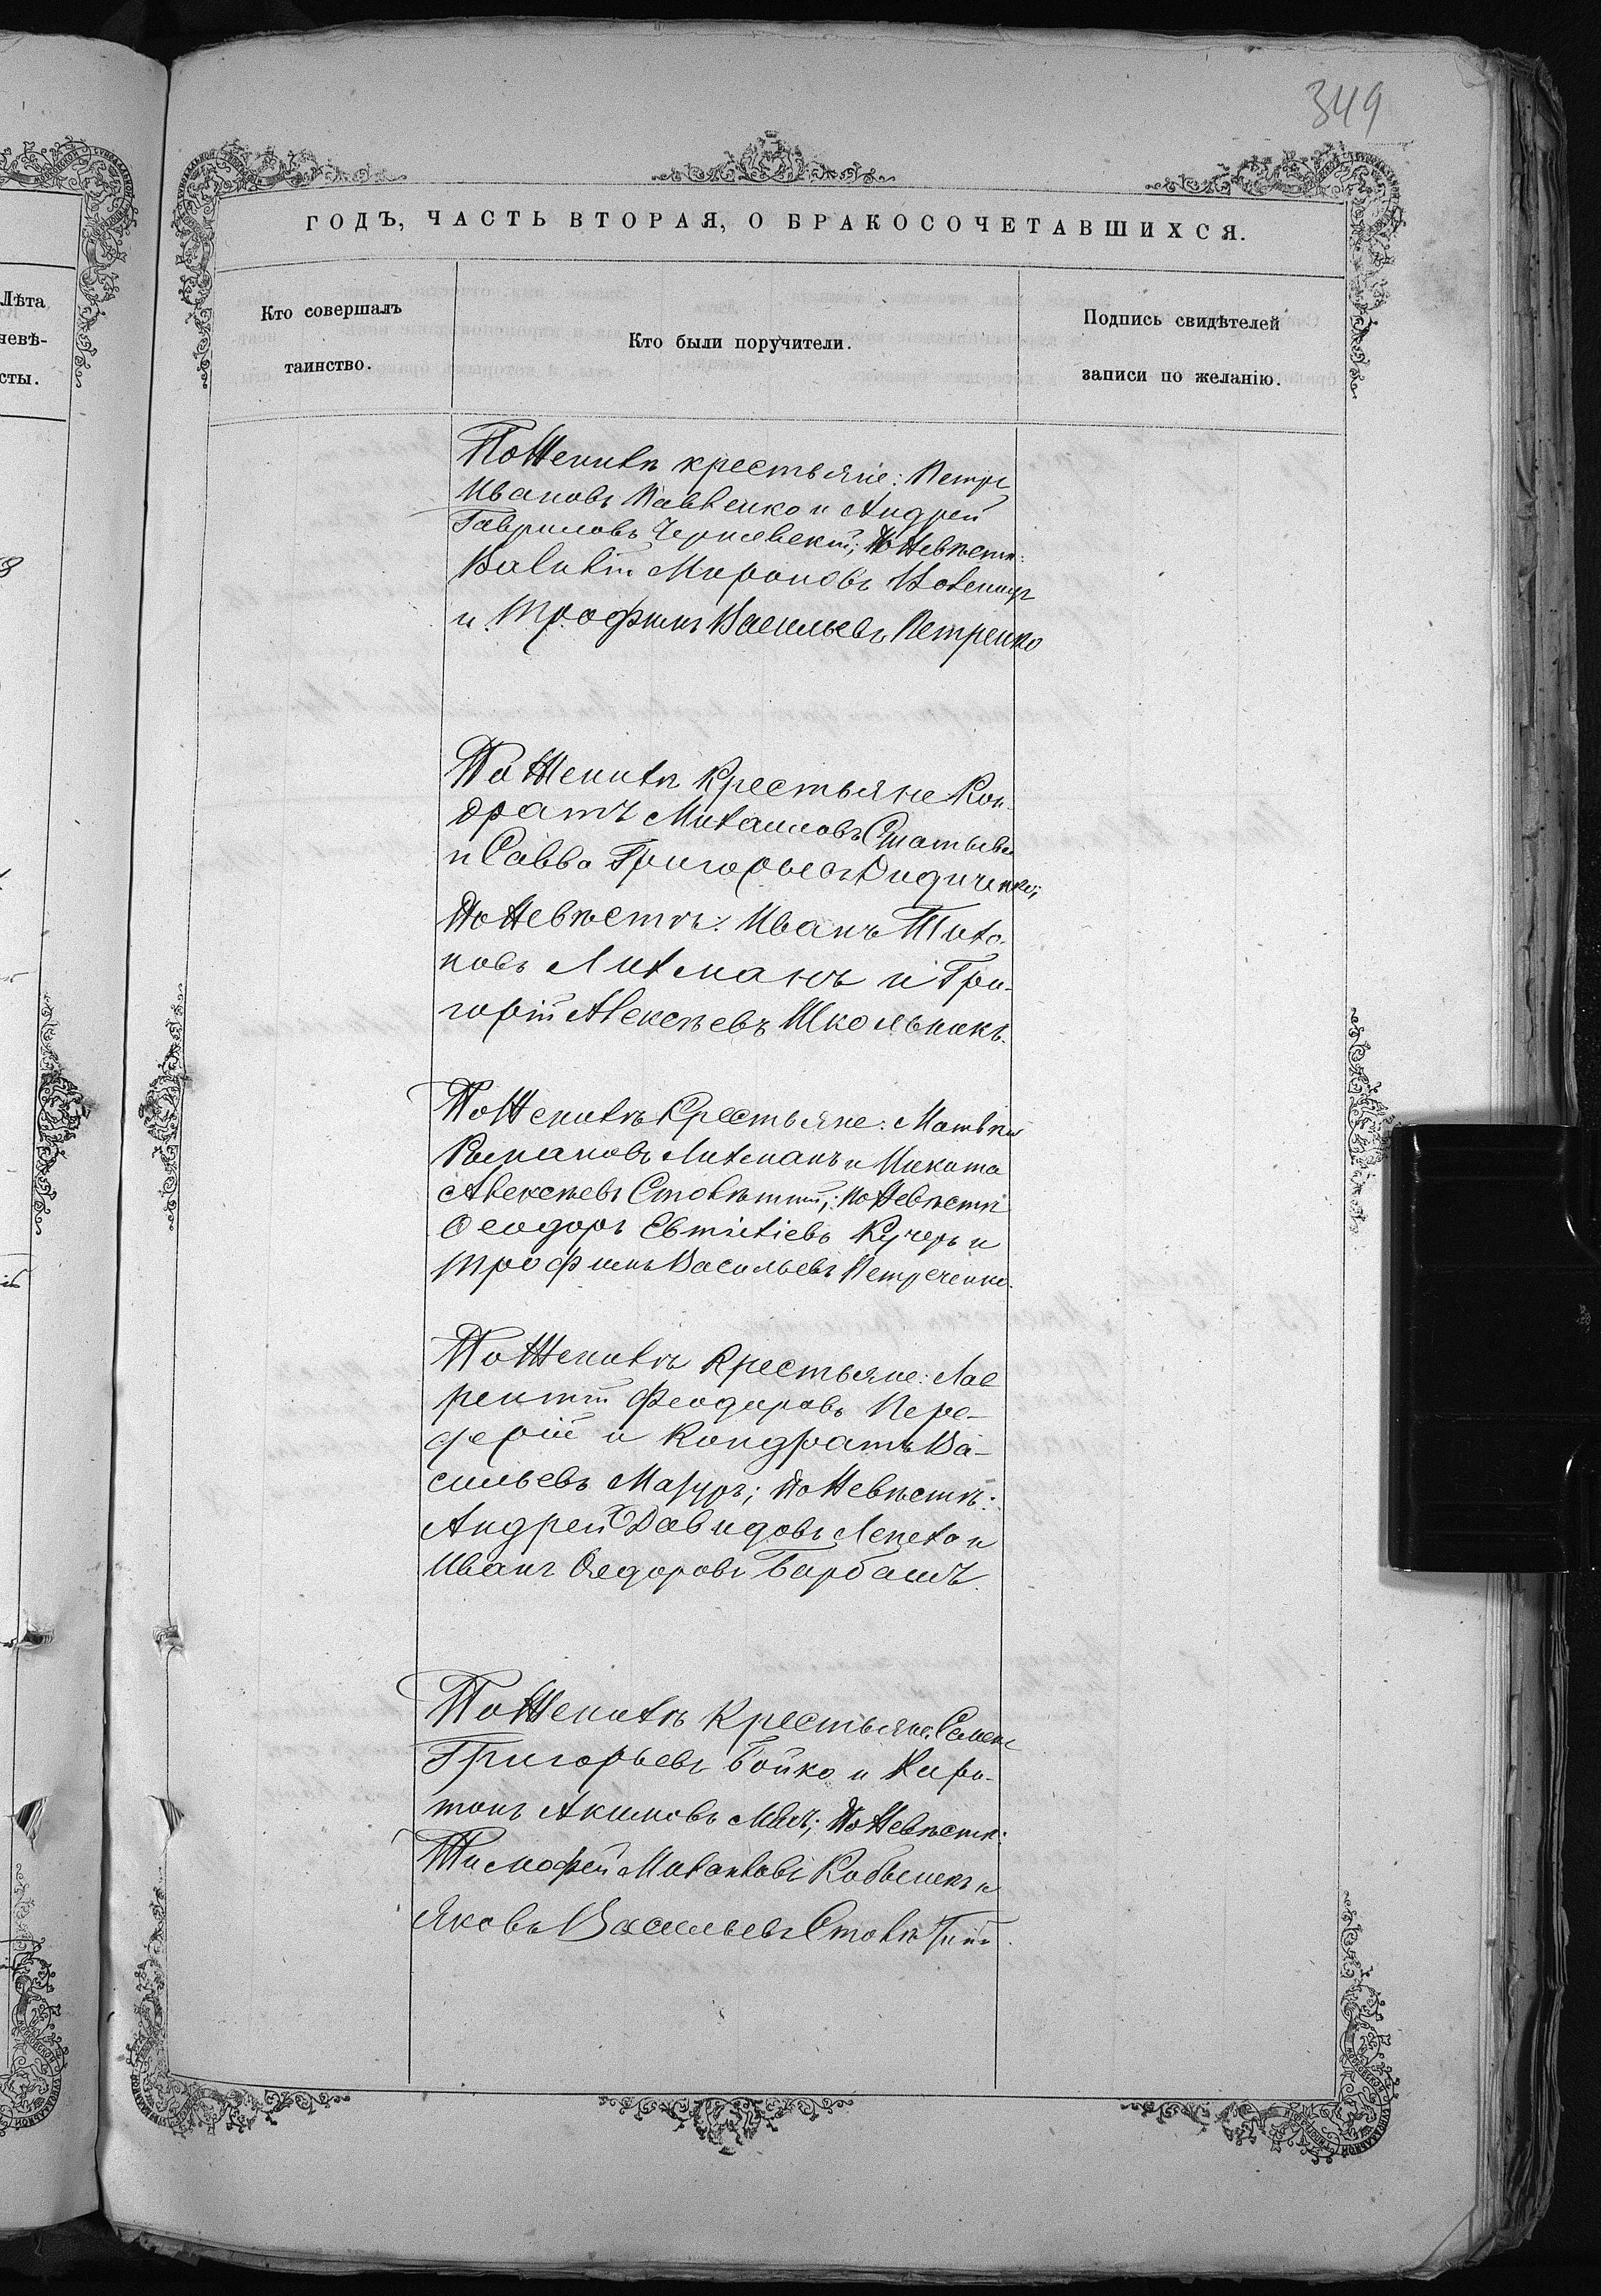 349
ГОДЪ, ЧАСТЬ ВТОРАЯ, О БРАКОСОЧЕТАВШИХСЯ.
Лѣта
невѣ-
сты.
Кто совершалъ
таинство.
Кто были поручители.
Подпись свидѣтелей
записи по желанію.
По Женихѣ крестьяне: Петръ
Ивановъ Павленко и Андрей
Гавриловъ Чернявскій; По Невѣстѣ:
Мироновъ
и Трофимъ Васильевъ Петренко
По Женихѣ Крестьяне Кон-
дратъ Михаиловъ
и Савва Григорьевъ Дидиченко;
По Невѣстѣ: Иванъ Тихо-
новъ Лихманъ и Гри-
горій Алексѣевъ Школьникъ.
По Женихѣ Крестьяне: Матѳѣй
Романовъ Лихманъ и Никита
Алексѣевъ Столѣтній; по Невѣстѣ
Ѳеодоръ Евтихіевъ Кучеръ и
Трофимъ Васильевъ Петреченко.
По Женихѣ Крестьяне: Лав
рентій Феодоровъ Пере-
дерій и Кондратъ Ва-
сильевъ Мазуръ; по Невѣстѣ:
Андрей Давидовъ Лепеха и
Иванъ Ѳедоровъ Барбашъ.
По Женихѣ Крестьяне: Семенъ
Григорьевъ Бойко и Хари-
тонъ Акимовъ По Невѣстѣ:
Тимофей и
Яковъ Васильевъ Столѣтній.